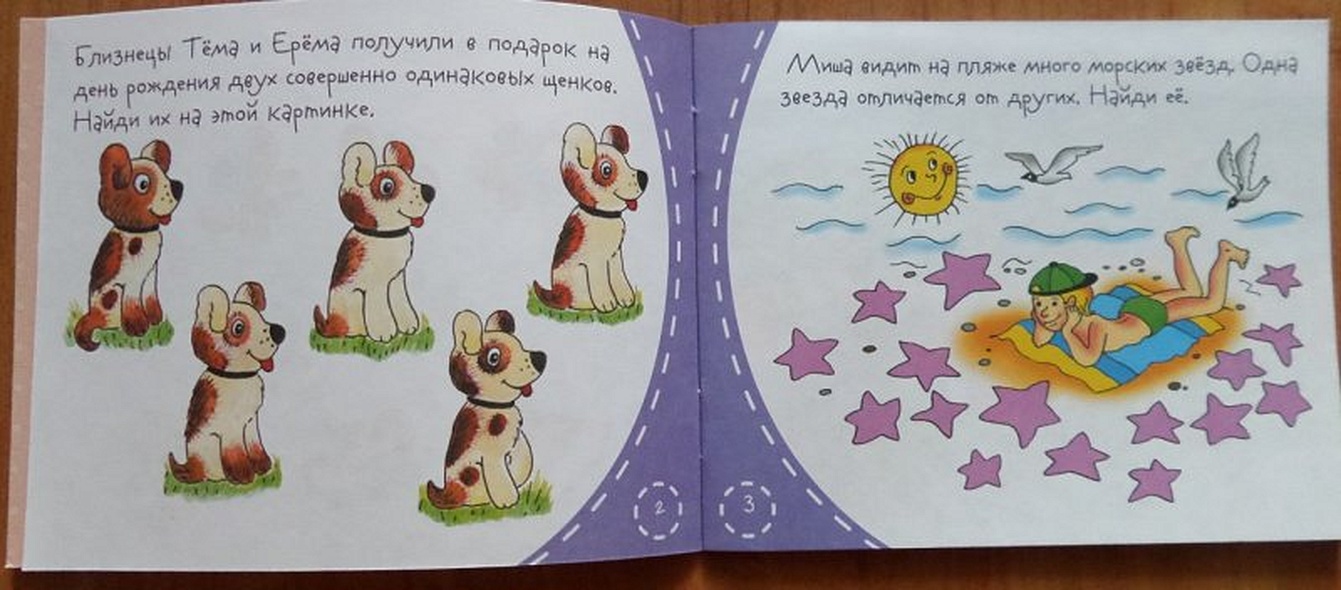 Близнецы Тёма и Ерёма получили в подарок на
день рождения двух совершенно одинаковых щенков.
Найди их на этой картинке.
Миша видит на пляже много морских звёзд. Одна
звезда отличается от других. Найди её.
2
3